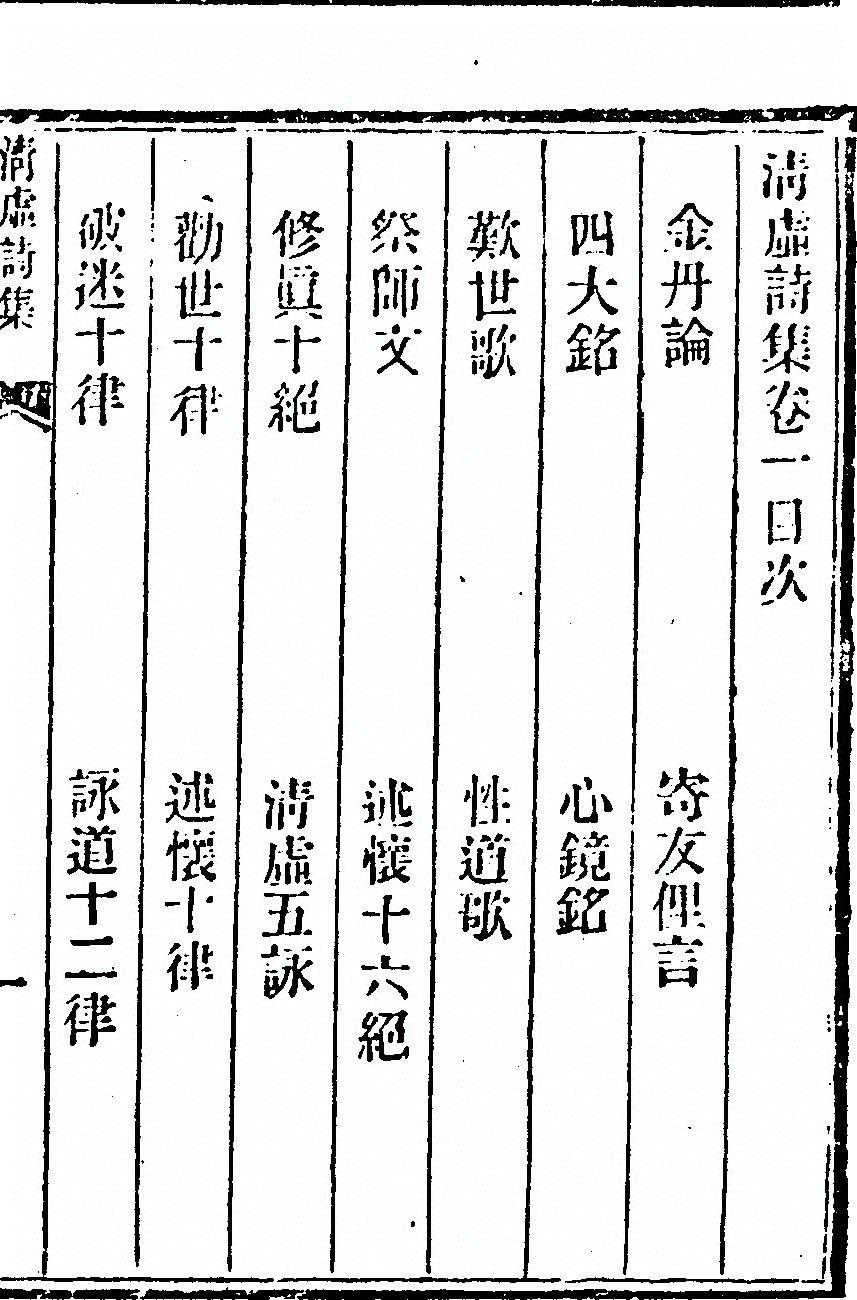 清虛詩集卷一目次
金丹論　寄友俚言
四大銘　心鏡銘
歎世歌　性道歌
祭師文　述懷十六絕
修眞十絕　清虛五詠
勸世十律　述懷十律
破迷十律　詠道十二律
清虛詩集　一